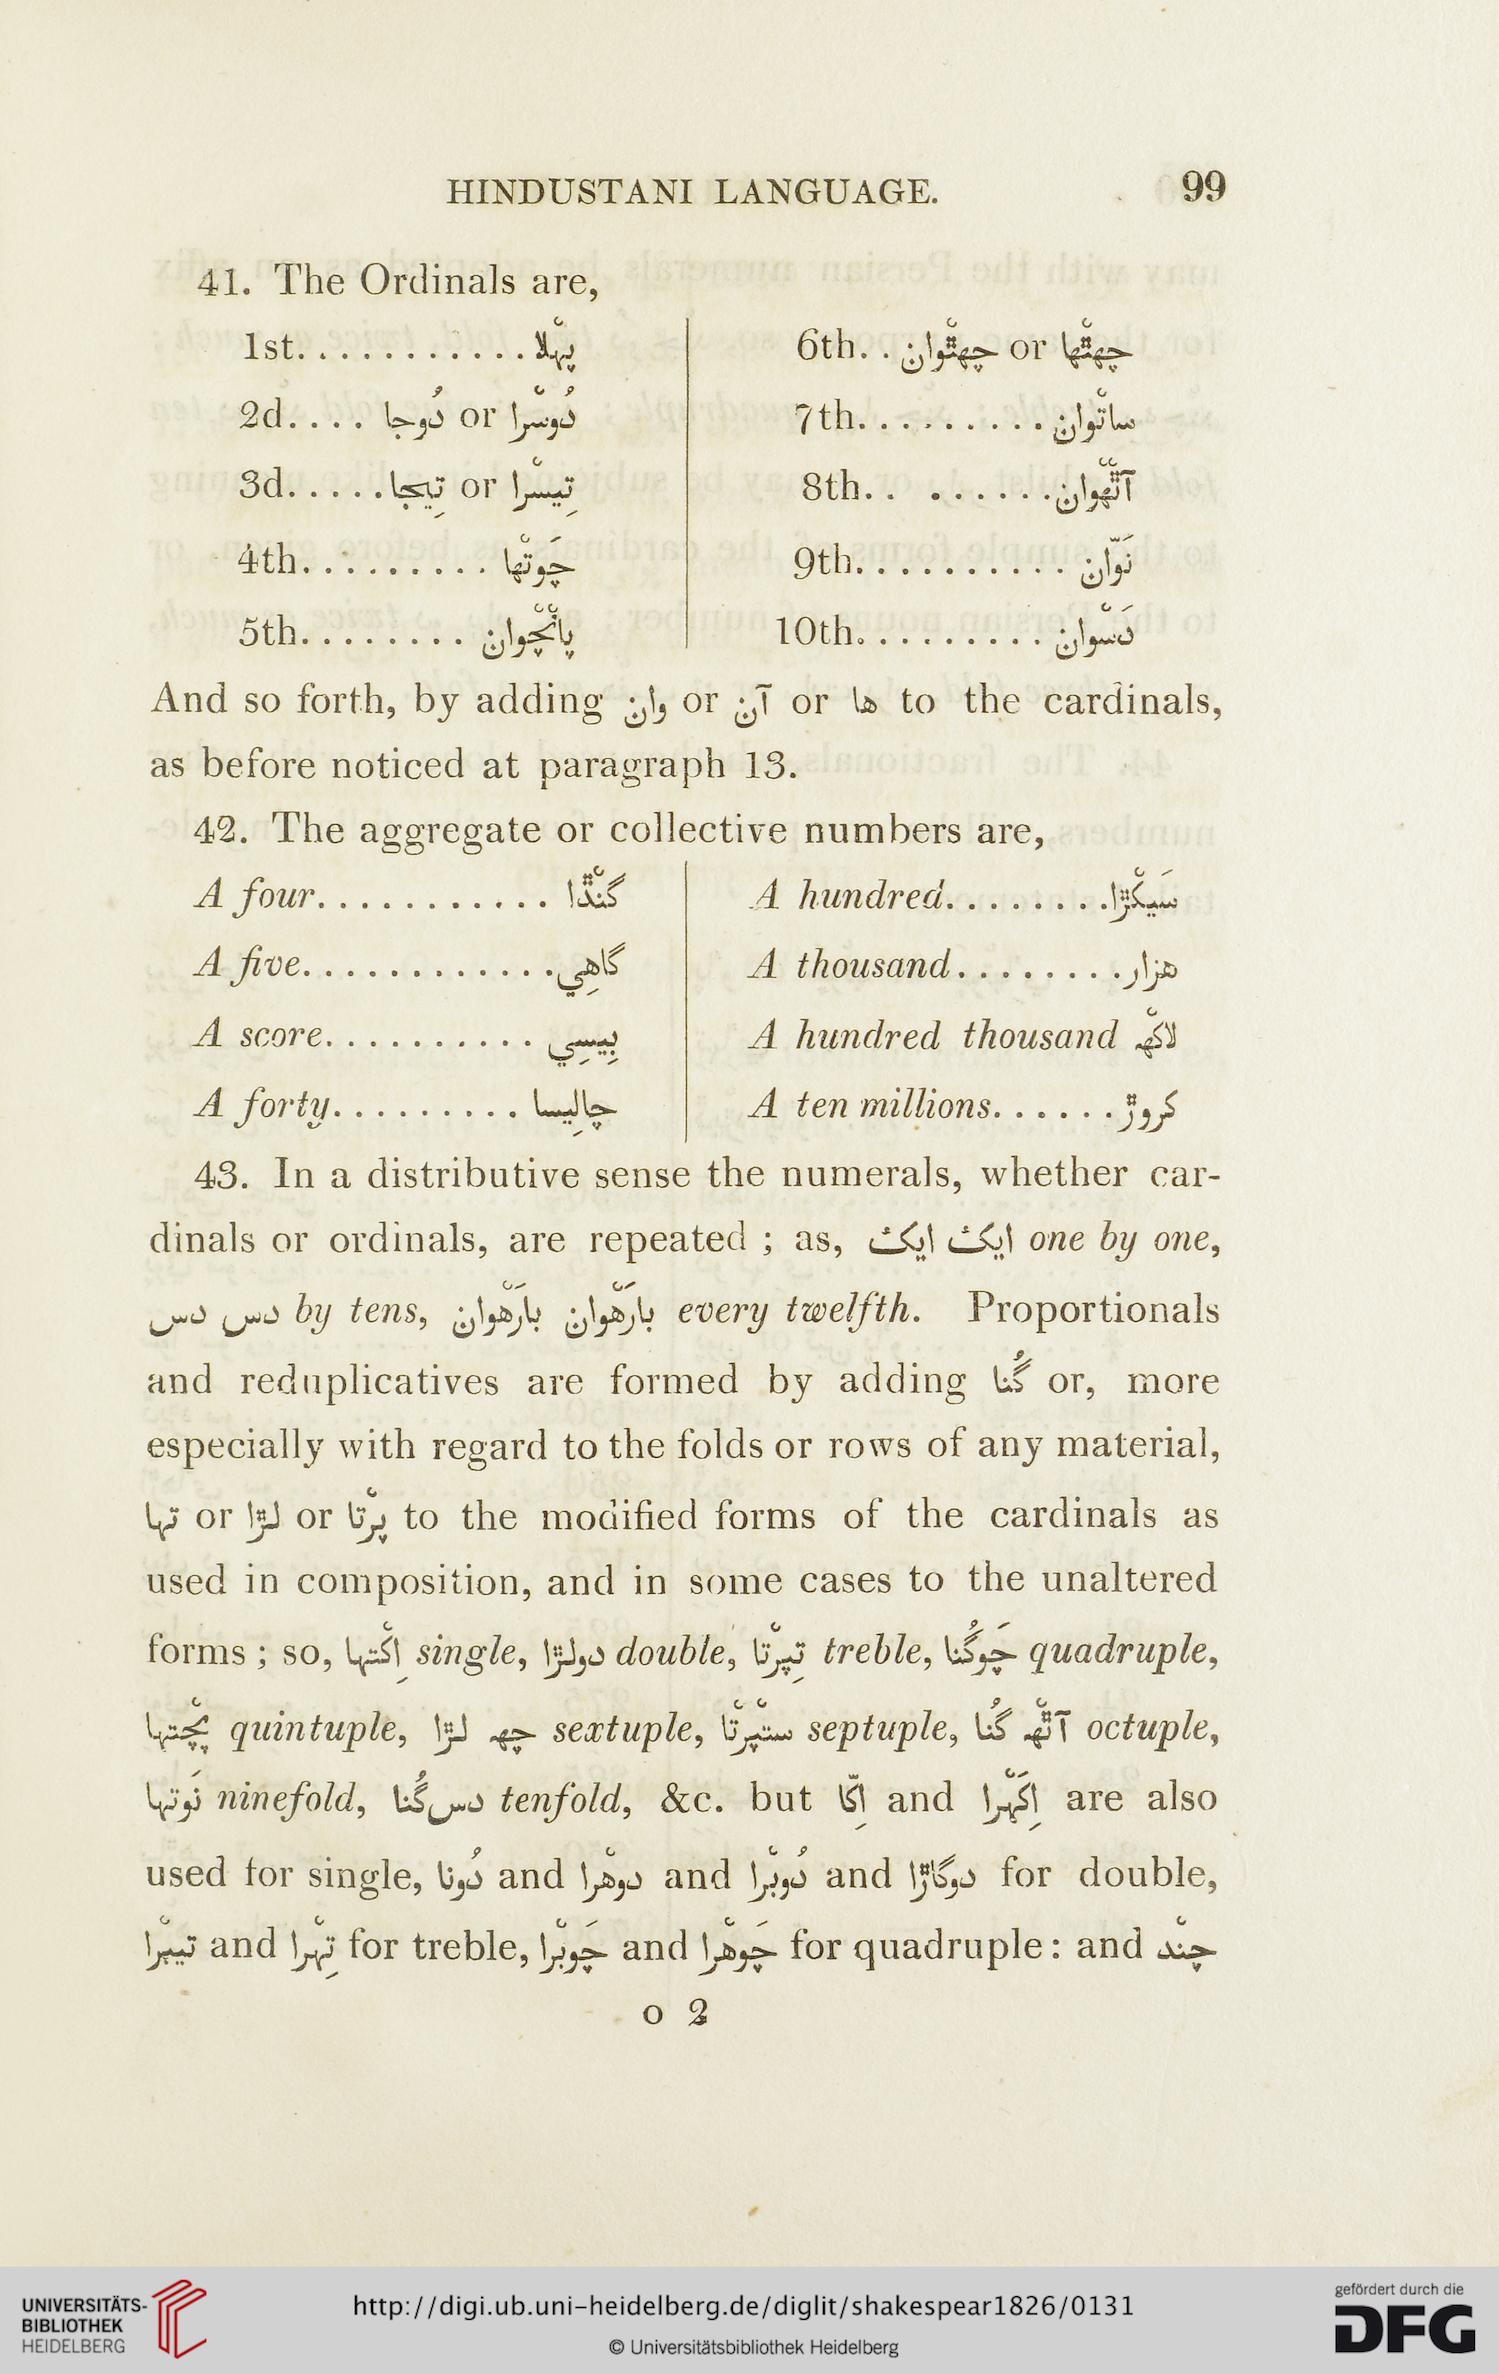 HINDUSTANI LANGUAGE. 99
41. The Ordinals are,
1st. . . . . . . . . . . پہْلا
2d. . . . دُوجا or دُوسْرا
3d. . . . . تِیجا or تِیسْرا
4th. . . . . . . . . چَوتْها
5th. . . . . . . . پانْچْوان
6th. . چهتّْوان or چهتّْها
7th. . . . . . . . . ساتْوان
8th. . . . . . . . آٹْهْوان
9th. . . . . . . . . . نَوّان
10th. . . . . . . . . دَسْوان
And so forth, by adding وان or آن or ها to the cardinals,
as before noticed at paragraph 13.
42. The aggregate or collective numbers are,
A four. . . . . . . . . . . گنْڈا
A five. . . . . . . . . . . . گاهِي
A score. . . . . . . . . . بِیسِي
A forty. . . . . . . . . چالِیسا
A hundred. . . . . . . . سَیکْڑا
A thousand. . . . . . . . هزار
A hundred thousand لاکْهہ
A ten millions. . . . . . کروڑ
43. In a distributive sense the numerals, whether car-
dinals or ordinals, are repeated ; as, ایکث ایکث one by one,
دس دس by tens, بارَهْوان بارَهْوان every twelfth. Proportionals
and reduplicatives are formed by adding گُنا or, more
especially with regard to the folds or rows of any material,
تہا or لڑا or پرْتا to the modified forms of the cardinals as
used in composition, and in some cases to the unaltered
forms ; so, اِکْتہا single, دولڑا double, تِپرْتا treble, چَوگُنا quadruple,
پچْتہا quintuple, چهہ لڑا sextuple, ستْپرْتا septuple, آٹْهہ گُنا octuple,
نَوتہا ninefold, دس گُنا tenfold, &c. but اِکّا and اِکَہْرا are also
used for single, دُونا and دوهْرا and دُوبْرا and دوگاڑا for double,
تیبْرا and تِہْرا for treble, چَوبْرا and چَوهْرا for quadruple: and چنْد
o 2
UNIVERSITÄTS-
BIBLIOTHEK
HEIDELBERG
http://digi.ub.uni-heidelberg.de/diglit/shakespear1826/0131
© Universitätsbibliothek Heidelberg
gefördert durch die
DFG